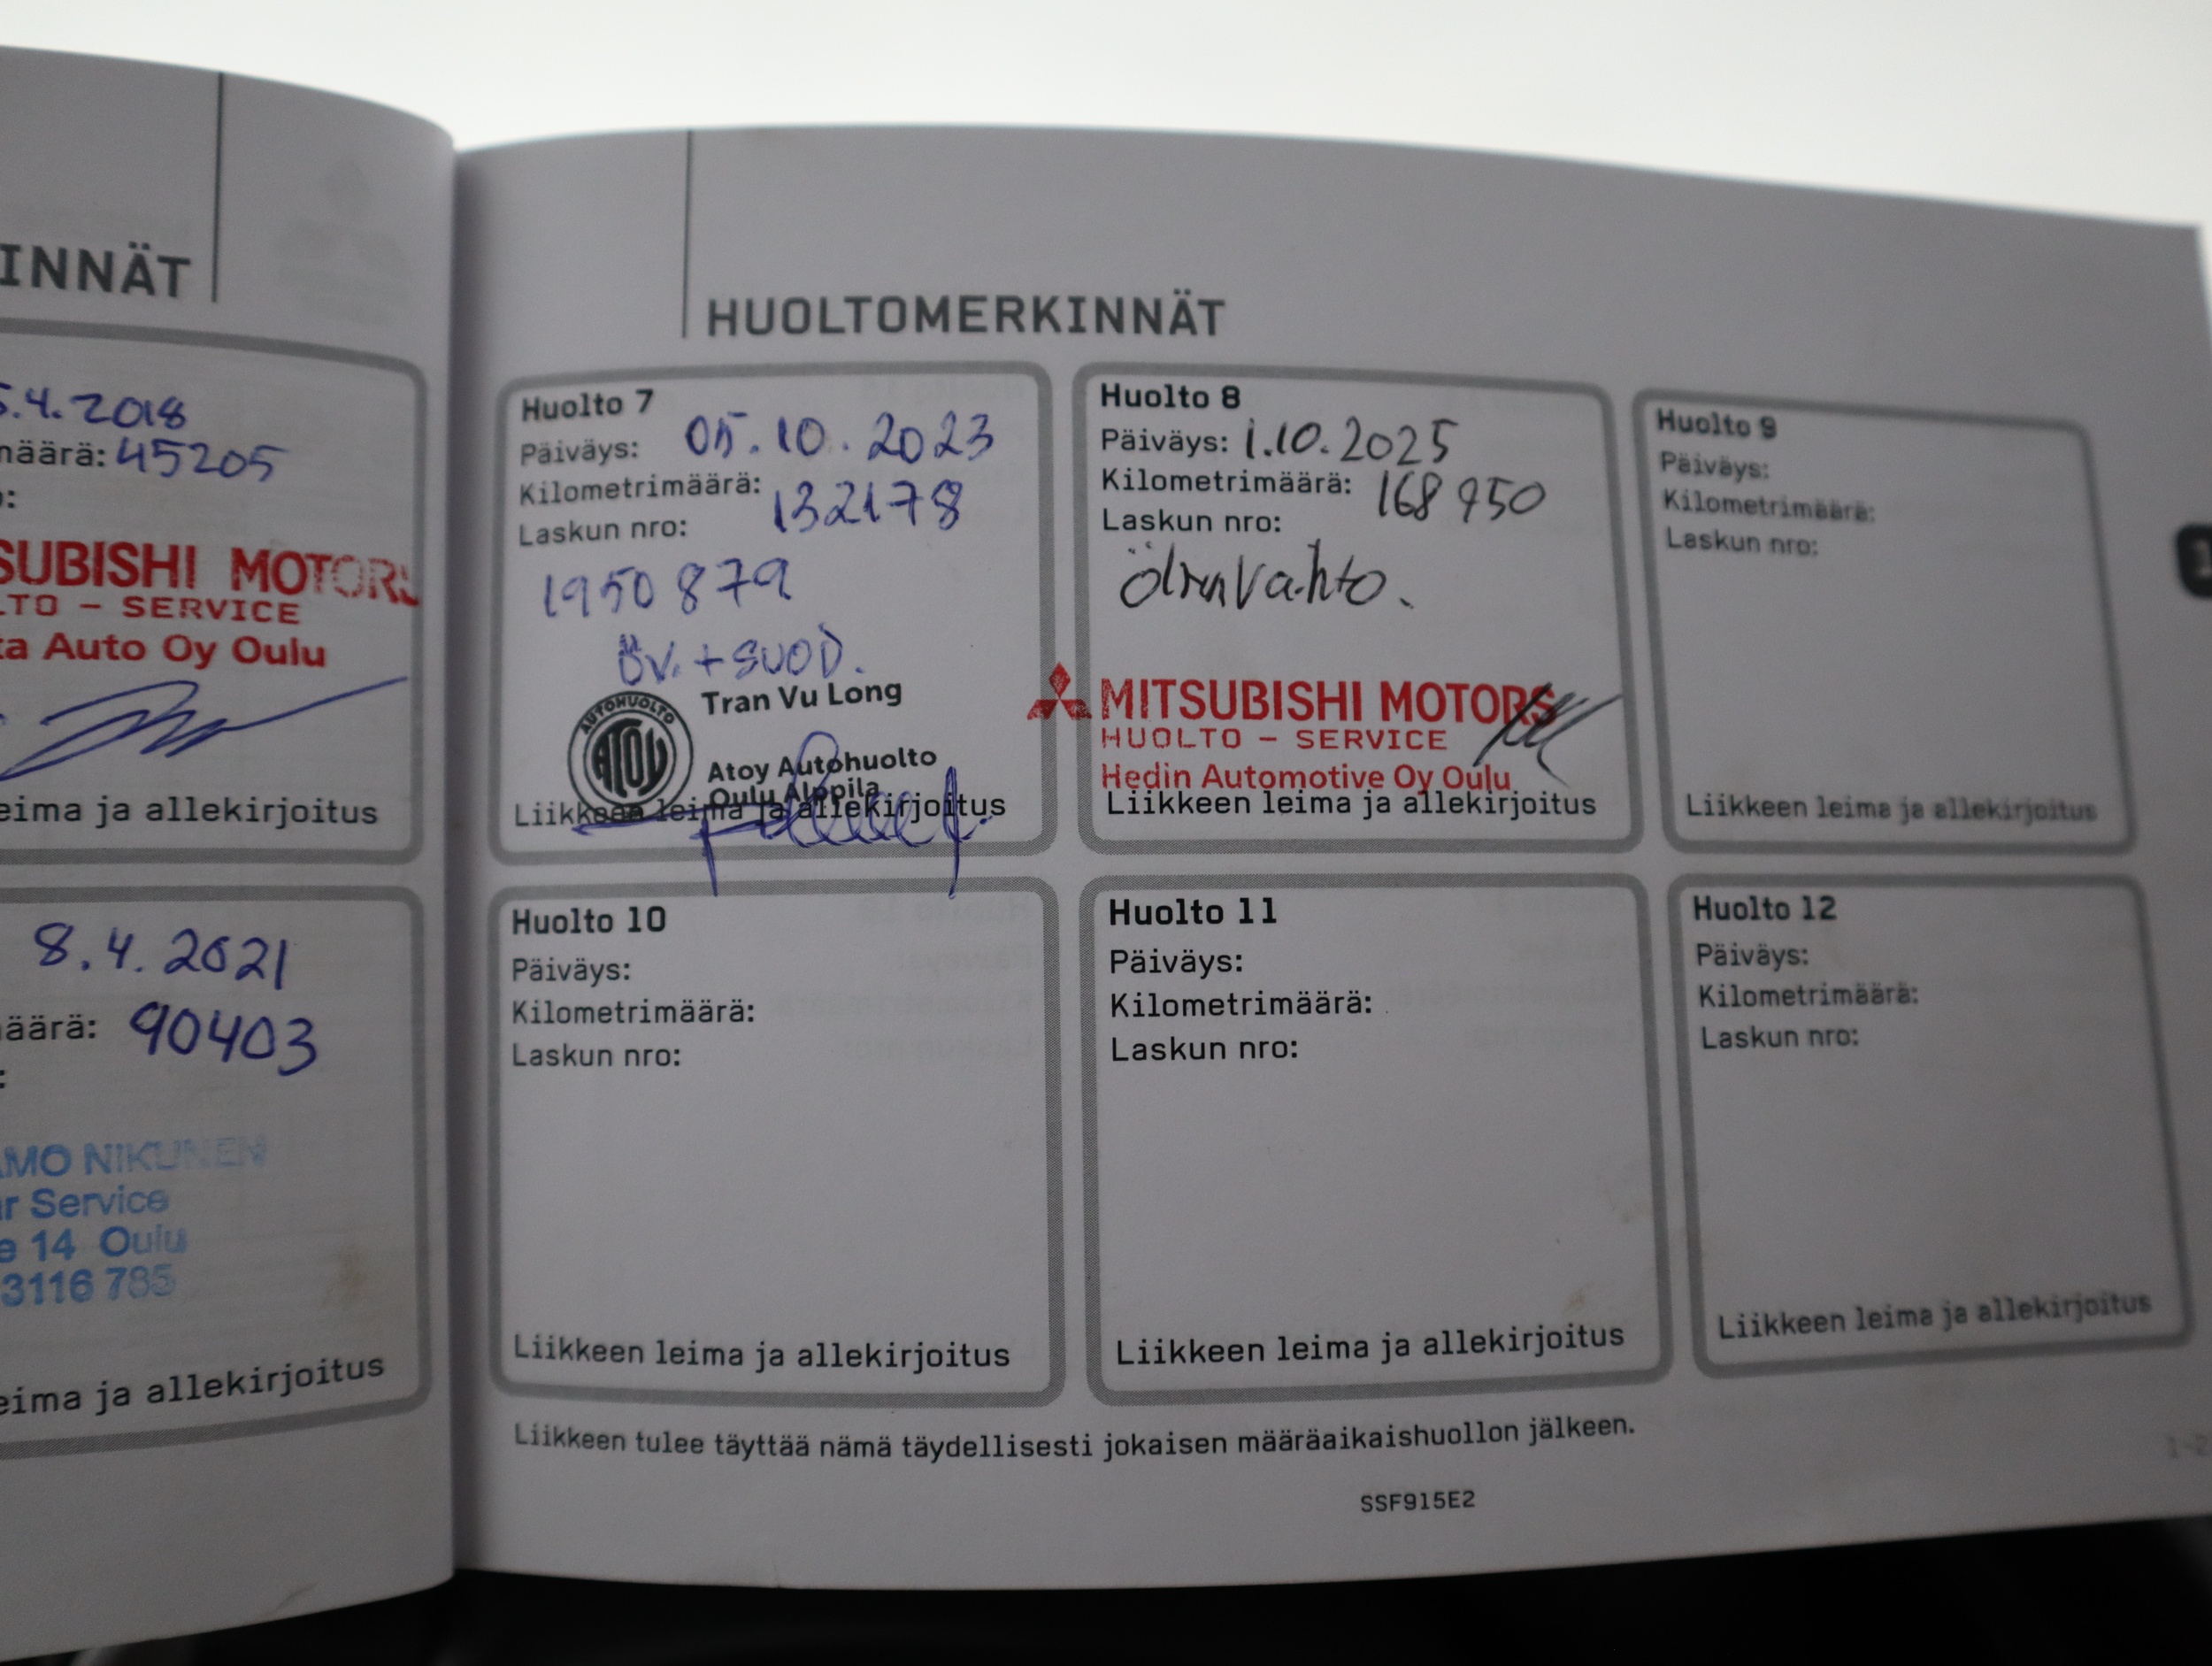 INNÄT
5.4.2018
määrä: 45205
o:
SUBISHI MOTORS
LTO - SERVICE
ta Auto Oy Oulu
eima ja allekirjoitus
8.4.2021
äärä: 90403
:
AMO NIKUNEN
ar Service
e 14 Oulu
3116 785
eima ja allekirjoitus
HUOLTOMERKINNÄT
Huolto 7
Päiväys: 05.10.2023
Kilometrimäärä: 132178
Laskun nro:
1950879
ÖV. + SUOD.
AUTOHUOLTO
ATOY
Tran Vu Long
Atoy Autohuolto
Oulu Alppila
Liikkeen leima ja allekirjoitus
Huolto 8
Päiväys: 1.10.2025
Kilometrimäärä: 168 950
Laskun nro:
MITSUBISHI MOTORS
HUOLTO - SERVICE
Hedin Automotive Oy Oulu
Liikkeen leima ja allekirjoitus
Huolto 9
Päiväys:
Kilometrimäärä:
Laskun nro:
Liikkeen leima ja allekirjoitus
Huolto 10
Päiväys:
Kilometrimäärä:
Laskun nro:
Liikkeen leima ja allekirjoitus
Huolto 11
Päiväys:
Kilometrimäärä:
Laskun nro:
Liikkeen leima ja allekirjoitus
Huolto 12
Päiväys:
Kilometrimäärä:
Laskun nro:
Liikkeen leima ja allekirjoitus
Liikkeen tulee täyttää nämä täydellisesti jokaisen määräaikaishuollon jälkeen.
SSF915E2
1
1-2